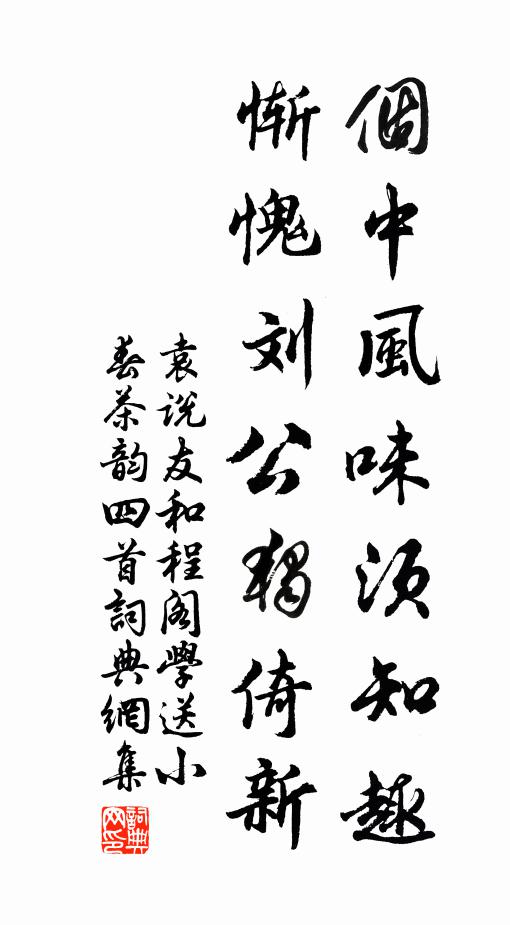 個中風味須知趣
慚愧刘公獨倚新
袁说友和程阁學送小
春茶韵四首詞典網集
詞典网印